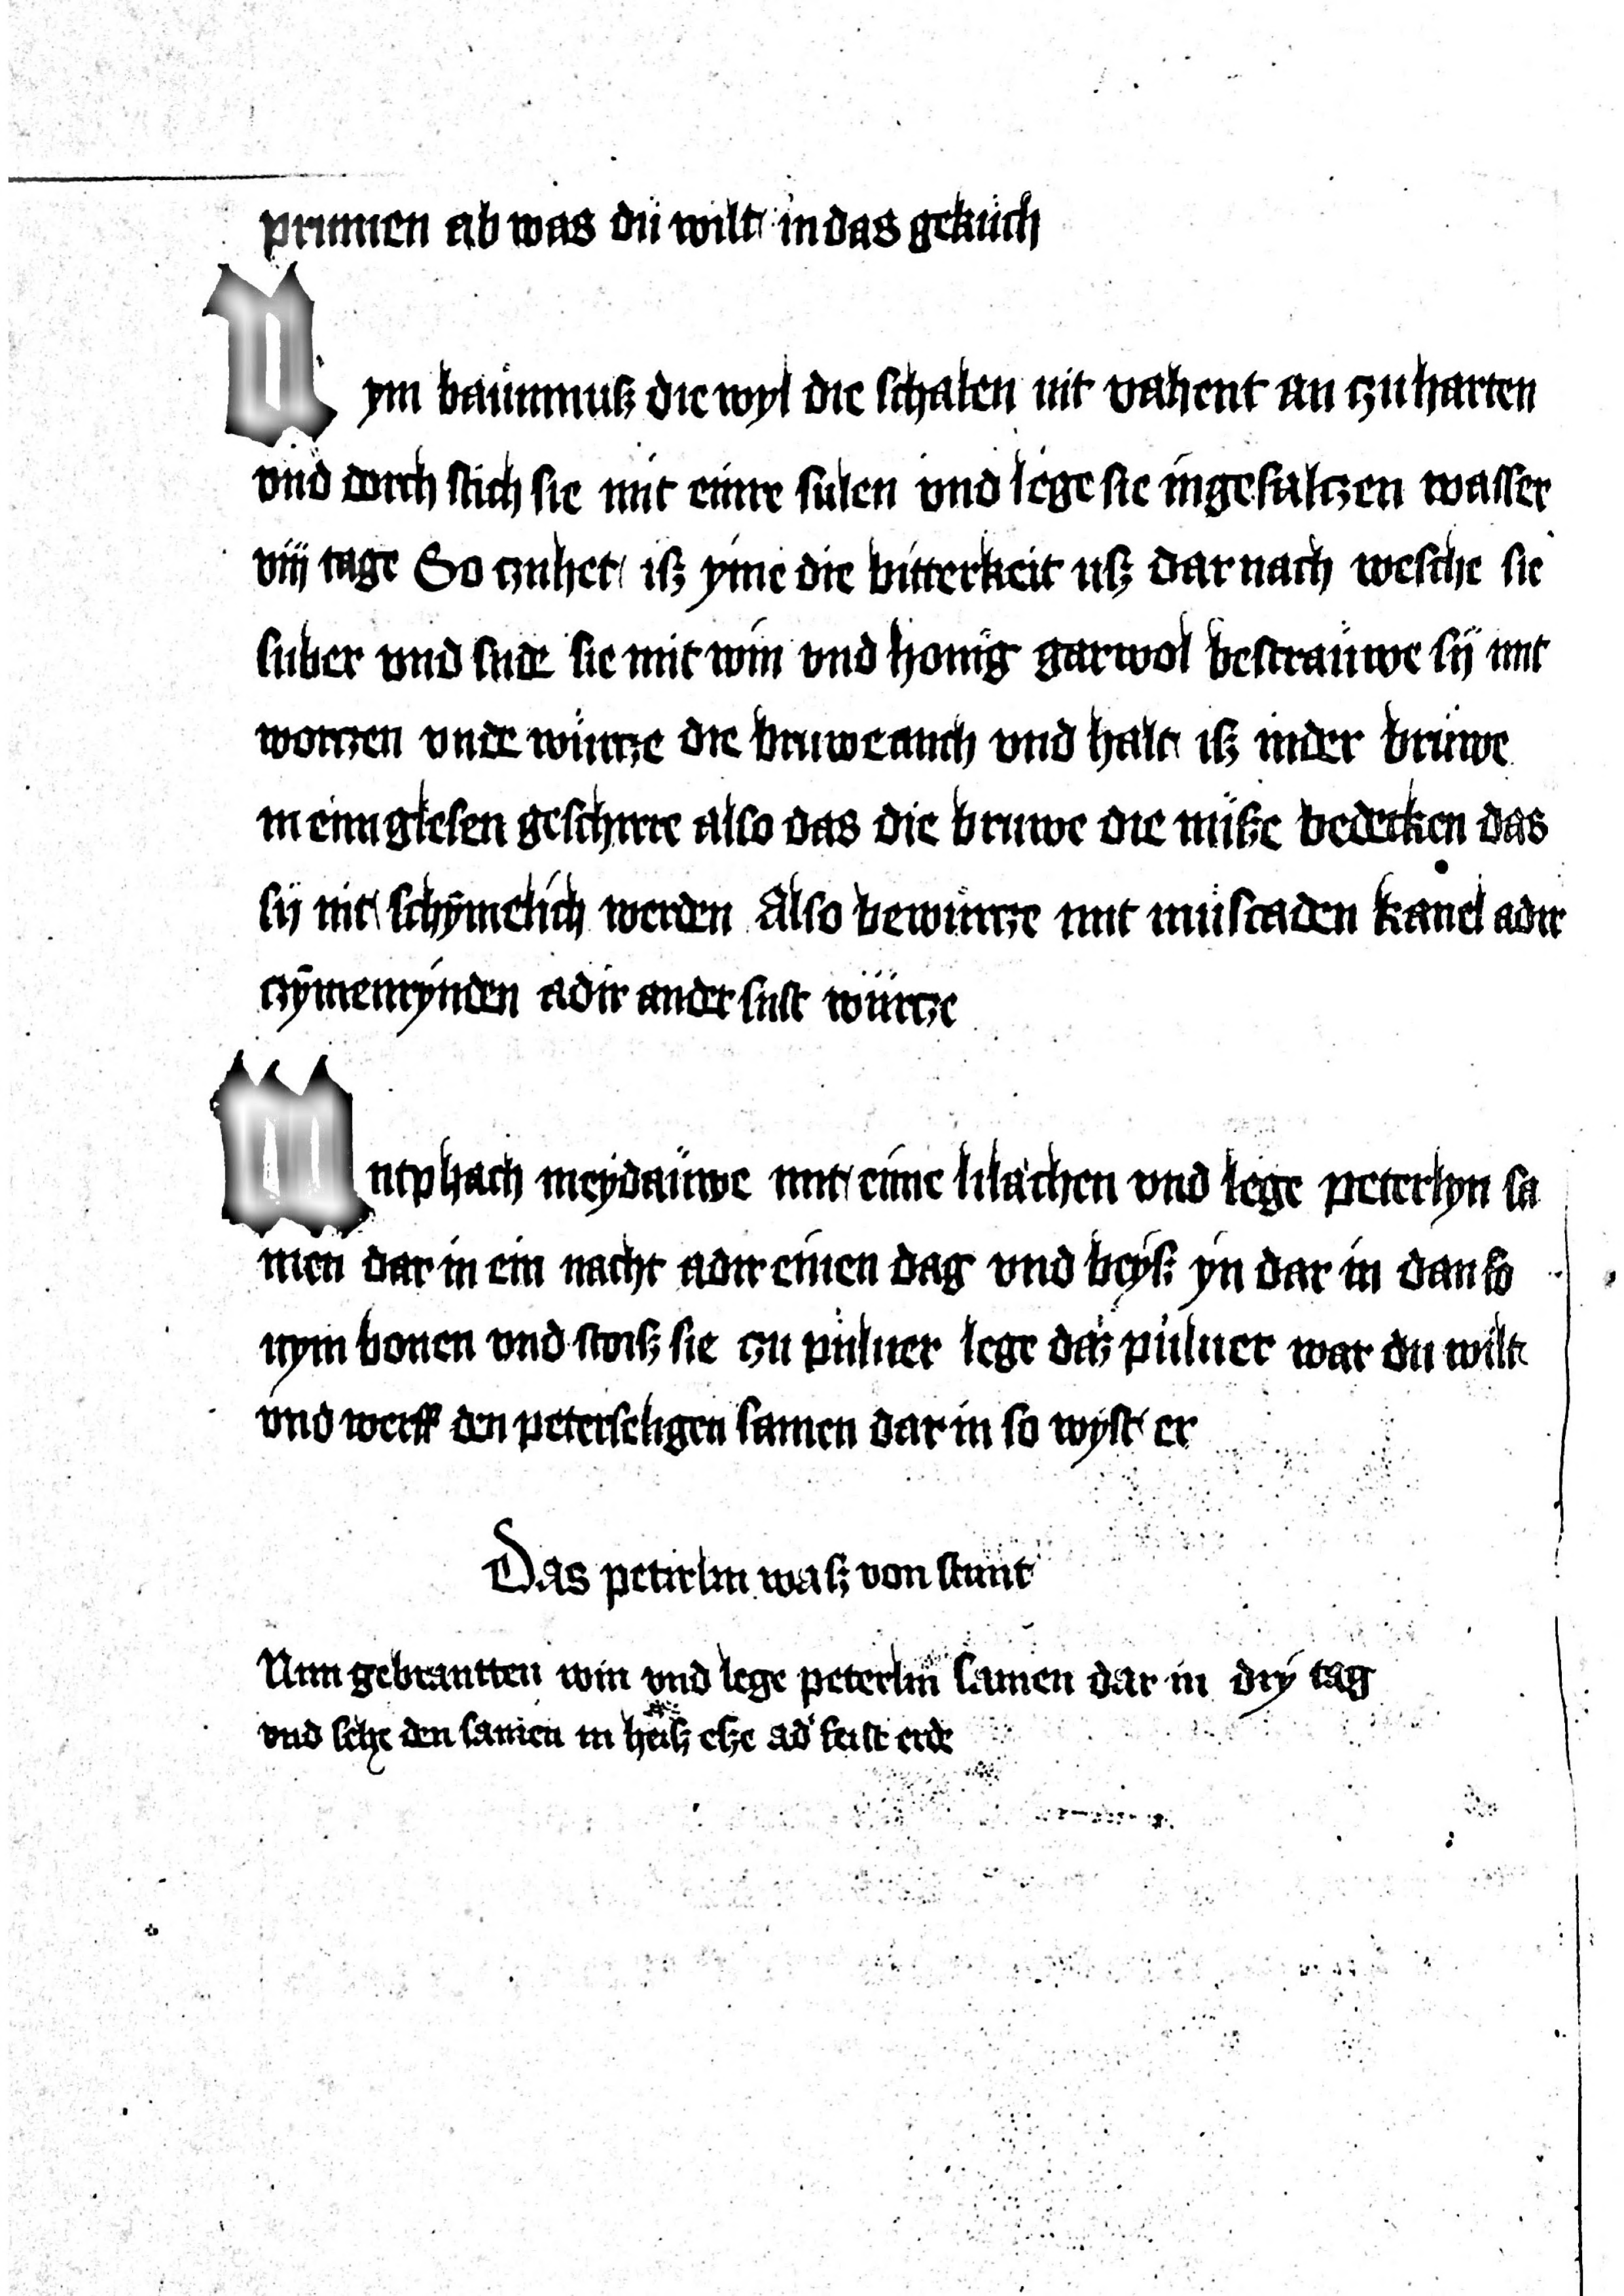 prumen ab was dü wilt in das geküch
Nym baümnuß die wyl die schalen nit vahent an zu harten
vnd dorch stich sie mit eime sulen vnd lege sie in gesaltzen wasser
viij tage So zuhet iß yme die bitterkeit uß dar nach wesche sie
suber vnd sude sie mit win vnd honig gar wol bestrauwe sij mit
wortzen vnde würtze die bruwe auch vnd halt iß in der brüwe
in eim glesen geschirre also das die bruwe die nüße bedecken das
sij nit schymelich werden Also bewürtze mit müscaden kanel adir
czymenrynden adir ander sust würtze
Entphach meydaüwe mit eime lilachen vnd lege peterlyn sa
men dar in ein nacht adir einen dag vnd beyß yn dar in dan so
nym bonen vnd stoiß sie zu puluer lege daz puluer war du wilt
vnd werff den peterseligen samen dar in so wyst er
Das petirlin waß von stunt
Nim gebrantten win vnd lege peterlin samen dar in dry tag
vnd sehe den samen in heiß eße ad' feist erde